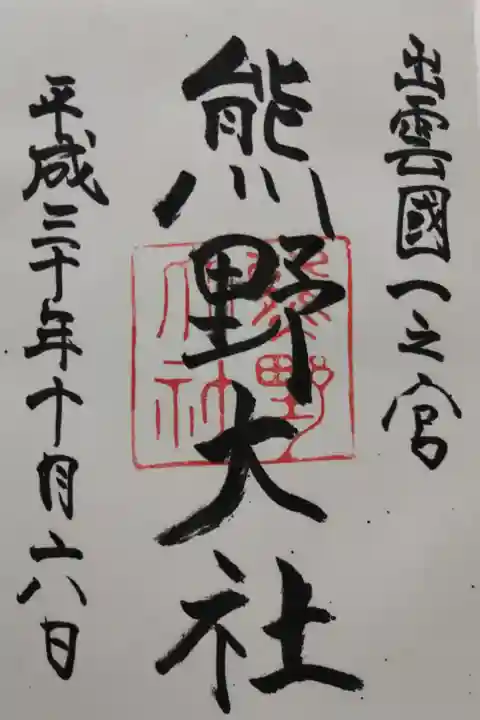 出雲國一之宮
熊野大社
平成三十年十月六日
熊野
大社